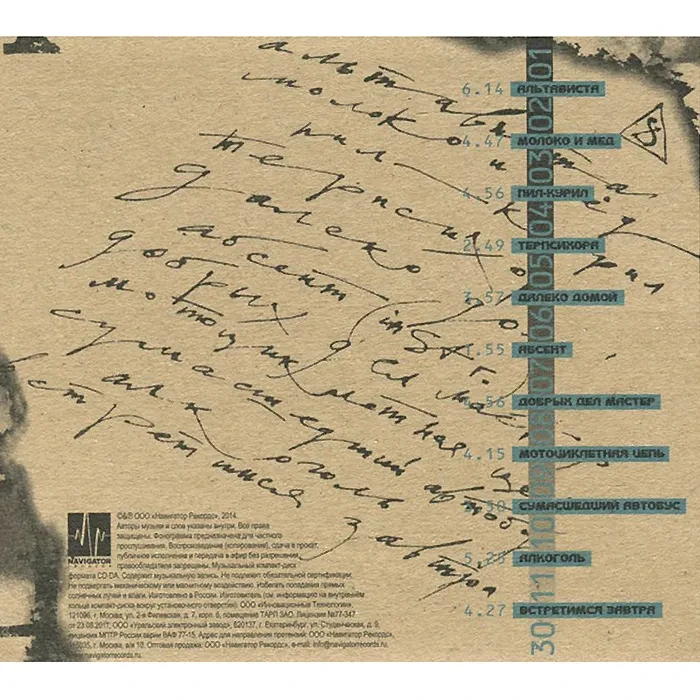 альтависта
молоко и мёд
пил-курил
терпсихора
далеко до
абсент in St.
добрых дел мас
мотоциклетная це
сумасшедший автобус
алкоголь
встретимся завтра
01 02 03 04 05 06 07 08 09 10 11 30
6.14 АЛЬТАВИСТА
4.47 МОЛОКО И МЕД
4.56 ПИЛ-КУРИЛ
2.49 ТЕРПСИХОРА
3.57 ДАЛЕКО ДОМОЙ
.55 АБСЕНТ
.56 ДОБРЫХ ДЕЛ МАСТЕР
4.15 МОТОЦИКЛЕТНАЯ ЦЕПЬ
.30 СУМАСШЕДШИЙ АВТОБУС
5.25 АЛКОГОЛЬ
4.27 ВСТРЕТИМСЯ ЗАВТРА
NAVIGATOR
RECORDS
©&℗ ООО «Навигатор Рекордс», 2014.
Авторы музыки и слов указаны внутри. Все права
защищены. Фонограмма предназначена для частного
прослушивания. Воспроизведение (копирование), сдача в прокат,
публичное исполнение и передача в эфир без разрешения
правообладателя запрещены. Музыкальный компакт-диск
формата CD-DA. Содержит музыкальную запись. Не подлежит обязательной сертификации.
Не подвергать механическому или магнитному воздействию. Избегать попадания прямых
солнечных лучей и влаги. Изготовлено в России. Изготовитель (см. информацию на внутреннем
кольце компакт-диска вокруг установочного отверстия): ООО «Инновационные Технологии»,
121096, г. Москва, ул. 2-я Филевская, д. 7, корп. 6, помещение ТАРП ЗАО. Лицензия №77-347
от 23.08.2011; ООО «Уральский электронный завод», 620137, г. Екатеринбург, ул. Студенческая, д. 9,
лицензия МПТР России серии ВАФ 77-15. Адрес для направления претензий: ООО «Навигатор Рекордс»,
г. Москва, а/я 10. Оптовая продажа: ООО «Навигатор Рекордс», e-mail: info@navigatorrecords.ru,
navigatorrecords.ru.